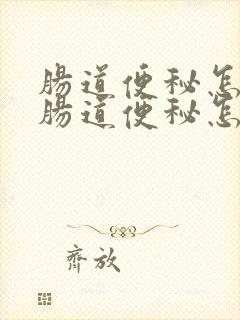 腸道便秘怎
腸道便秘怎
齊放